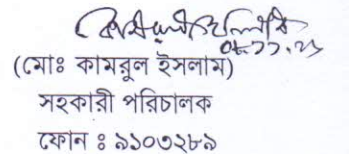 (মোঃ কামরুল ইসলাম)
সহকারী পরিচালক
ফোন : ৯১০৩২৮৯